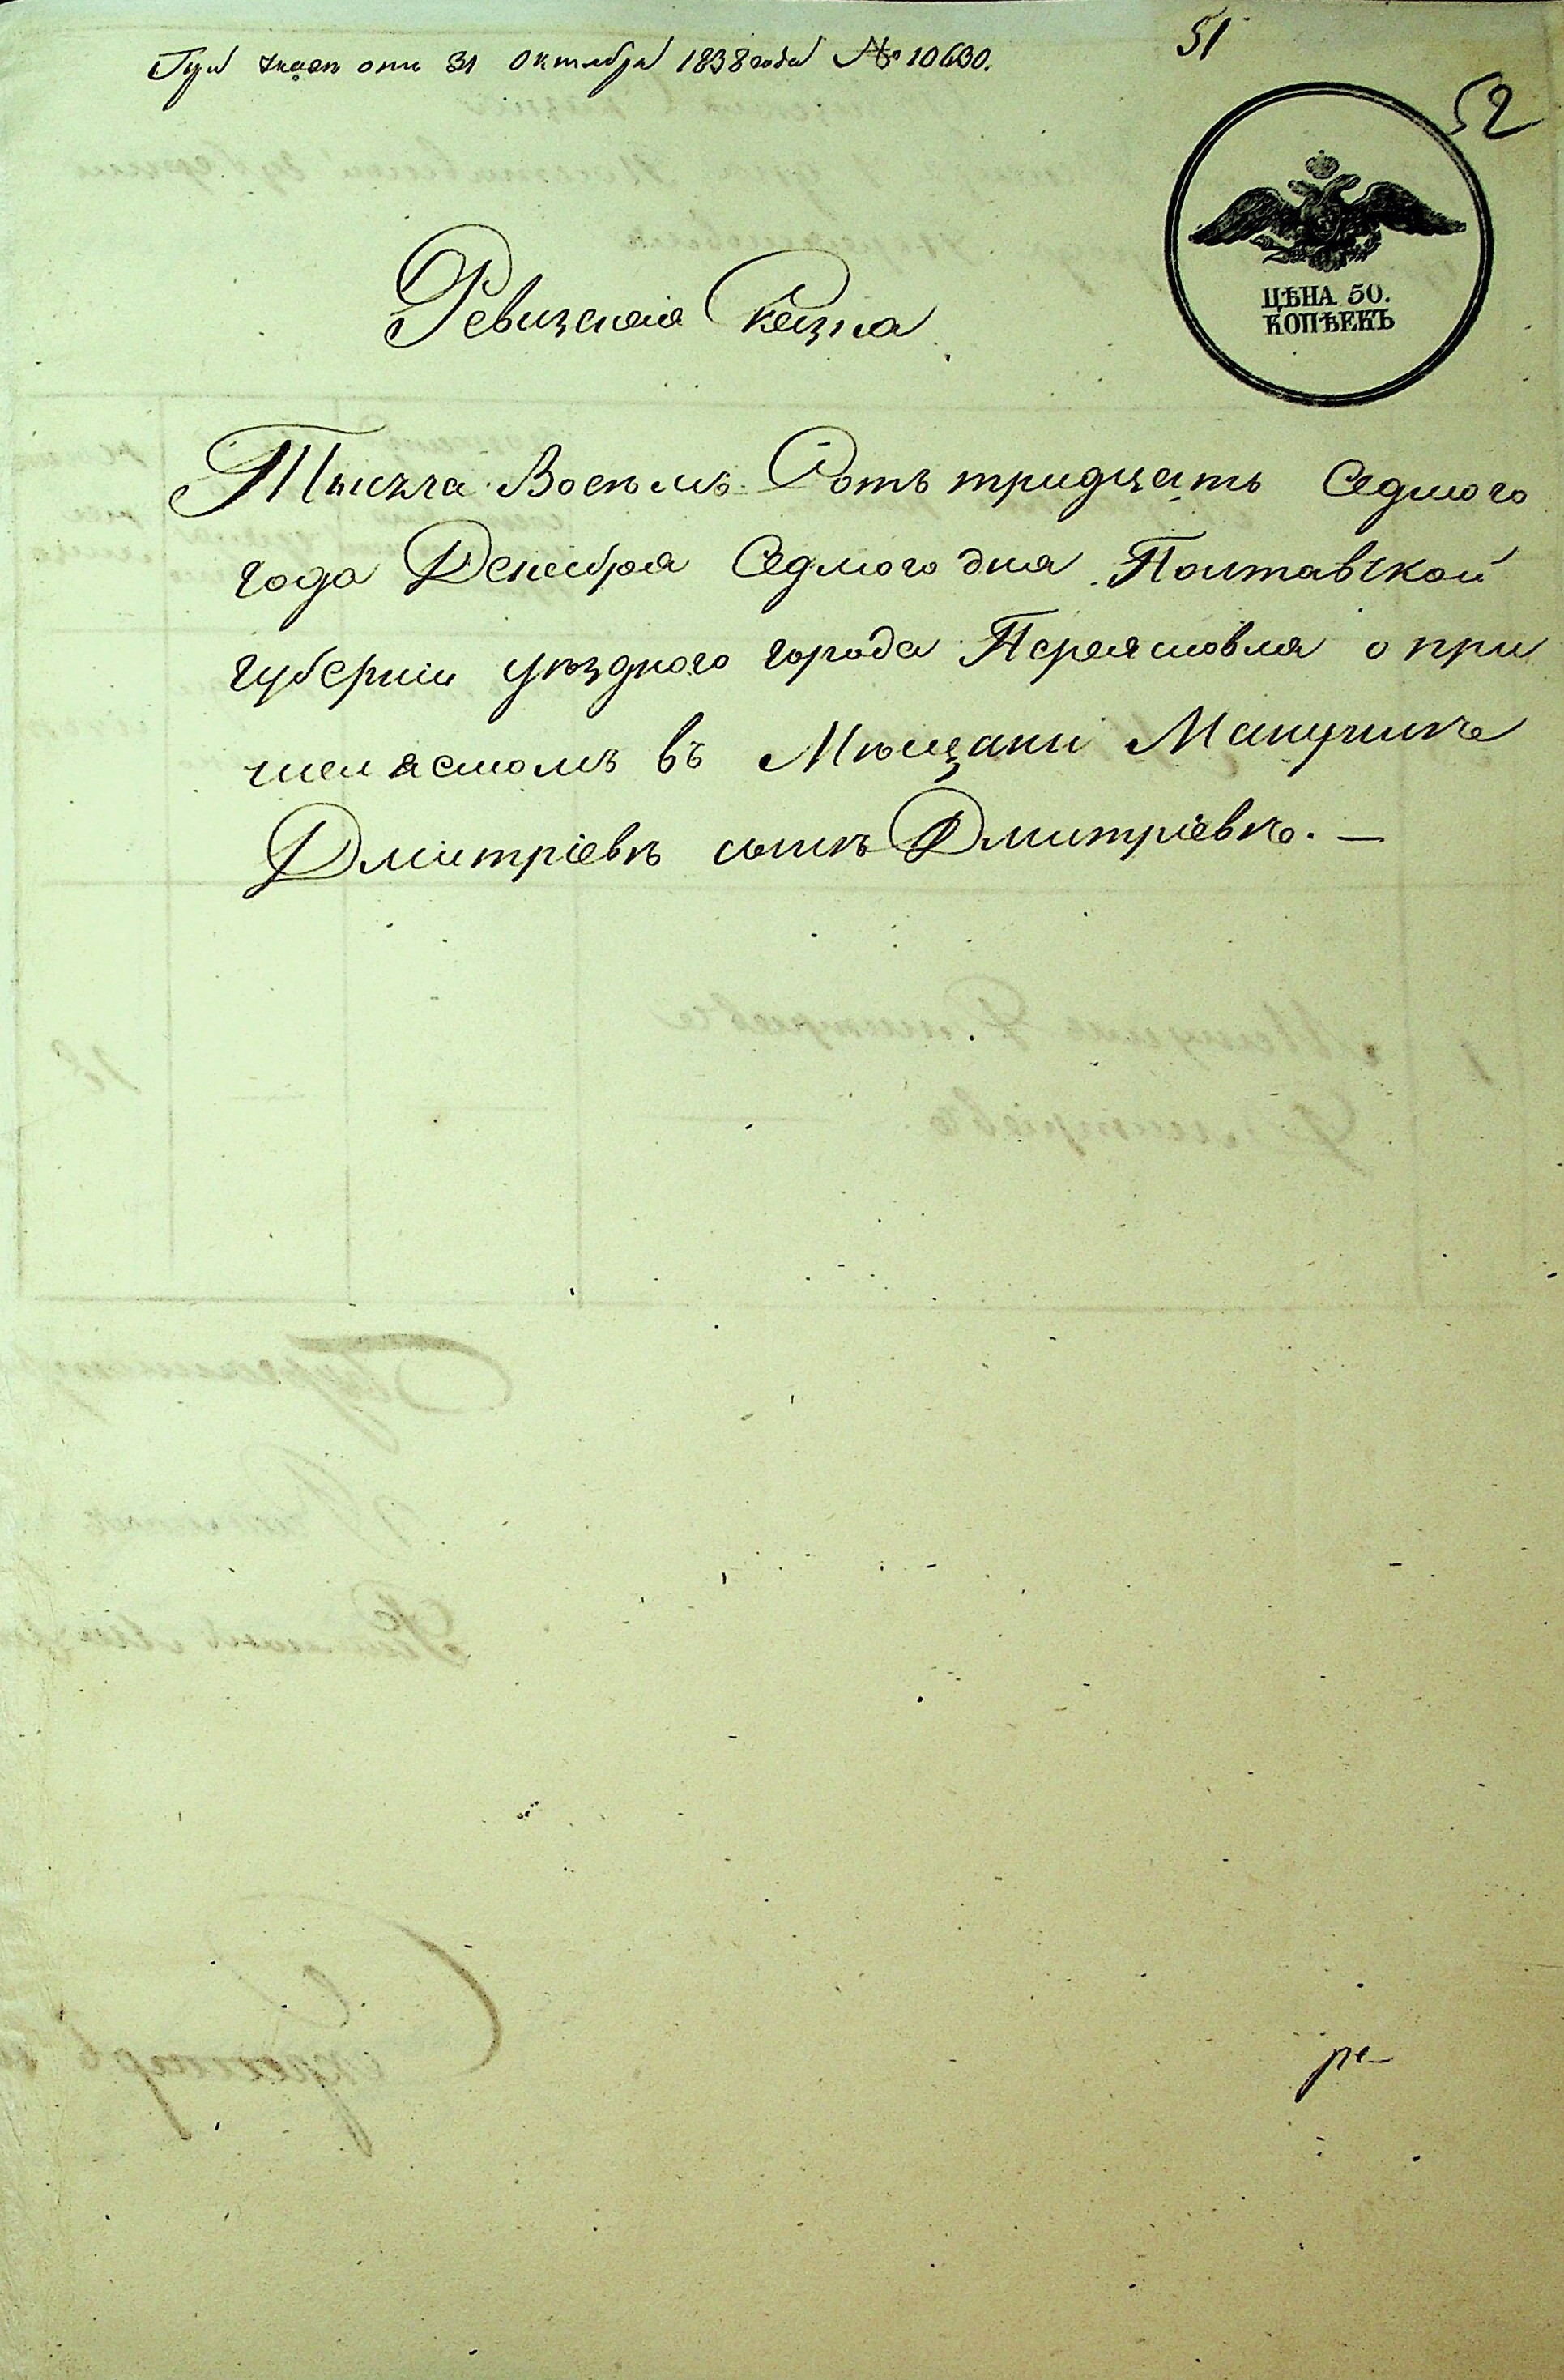 При указе отъ 31 Октября 1838 года № 10630.
51
52
ЦѢНА 50.
КОПѢЕКЪ
Ревизская Сказка
Тысяча Восемъ Сотъ тридцать Седмого
года Декабря Седмого дня Полтавской
губерніи уѣзднаго города Переяславля о при
численномъ въ Мѣщани
Дмитріевѣ сынѣ Дмитріевѣ. —
ре-